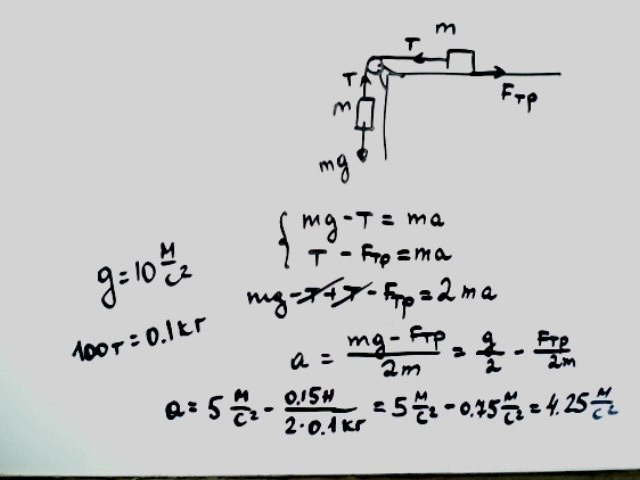 m
T
Fтр
T
m
mg
mg - T = ma
T - Fтр = ma
g = 10 м/с²
mg - T + T - Fтр = 2ma
100г = 0.1кг
a = (mg - Fтр)/2m = g/2 - Fтр/2m
a = 5 м/с² - 0.15Н/(2·0.1кг) = 5 м/с² - 0.75 м/с² = 4.25 м/с²